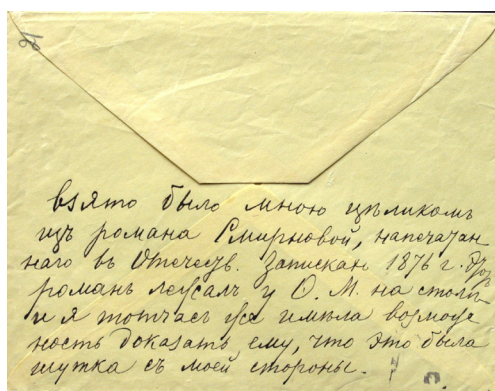 взято было мною цѣликомъ
изъ романа Смирновой, напечатан
наго въ Отечеств. запискахъ 1876 г. Этотъ
романъ лежалъ у Ѳ. М. на столѣ
и я тотчасъ же имѣла возмож
ность доказать ему, что это была
шутка съ моей стороны.